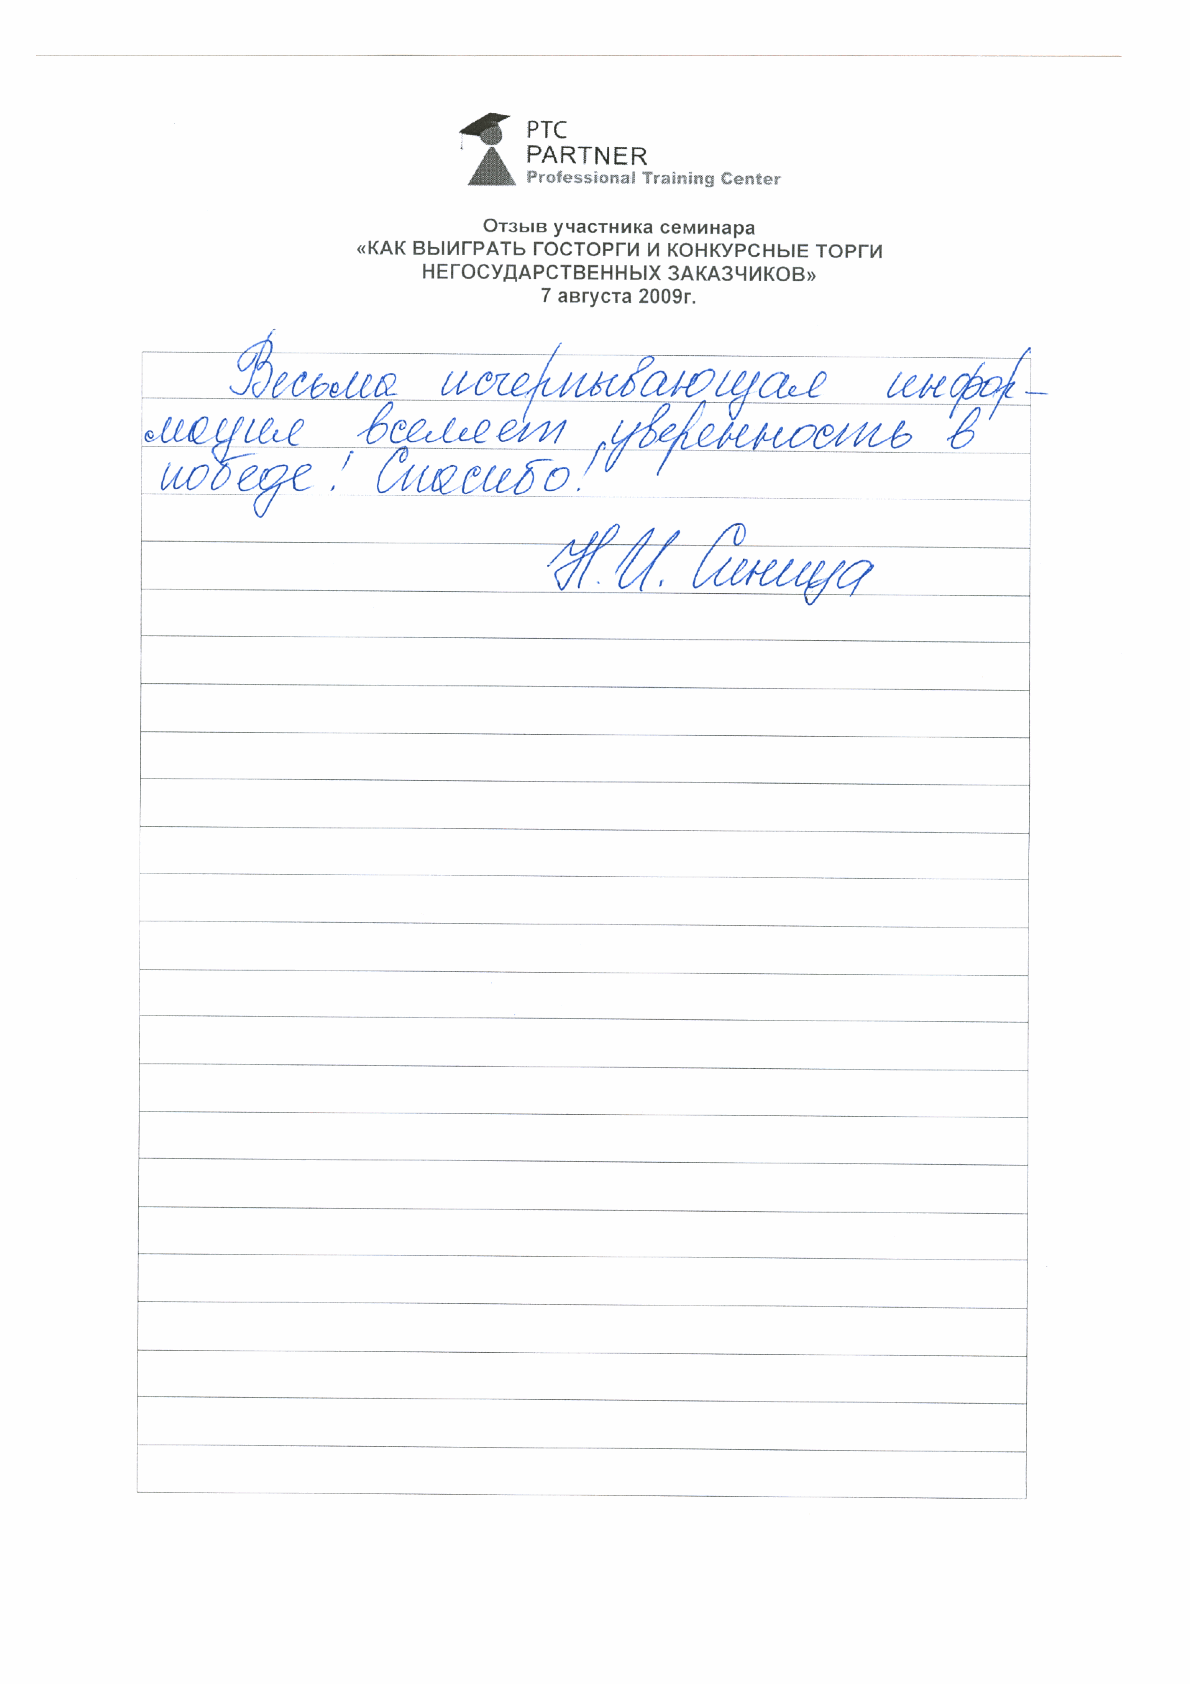 PTC
PARTNER
Professional Training Center
Отзыв участника семинара
«КАК ВЫИГРАТЬ ГОСТОРГИ И КОНКУРСНЫЕ ТОРГИ
НЕГОСУДАРСТВЕННЫХ ЗАКАЗЧИКОВ»
7 августа 2009г.
Весьма исчерпывающая инфор-
мация вселяет уверенность в
победе! Спасибо!
Н.И. Синица